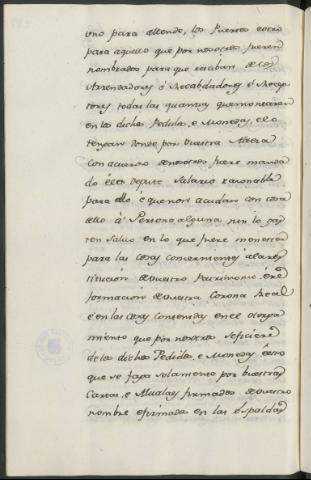 uno para allende, los Puertos è otro
para aquello que por nosotros fueren
nombrados para que reciban de los
Arrendadores ó Recabdadores ó Recep
tores todas las quantias que montaren
en los dichos Pedidos, e Monedas, e lo
tengan donde por Vuestra Alteza
con acuerdo de nosotros fuere manda
do é les depute Salario razonable
para ello é que non acudan con cosa
dello à Persona alguna, nin lo gas
ten Salvo en lo que fuere menester
para las cosas concernientes á la res
titucion de Vuestro Patrimonio, é re
formacion de Vuestra Corona Real
é en las cosas contenidas en el otorga
miento que por nosotros se ficiere
de los dichos Pedidos, e Monedas, é esto
que se faga solamente por buestras
Cartas, e Alvalaes firmadas de vuestro
nombre é firmadas en las Espaldas